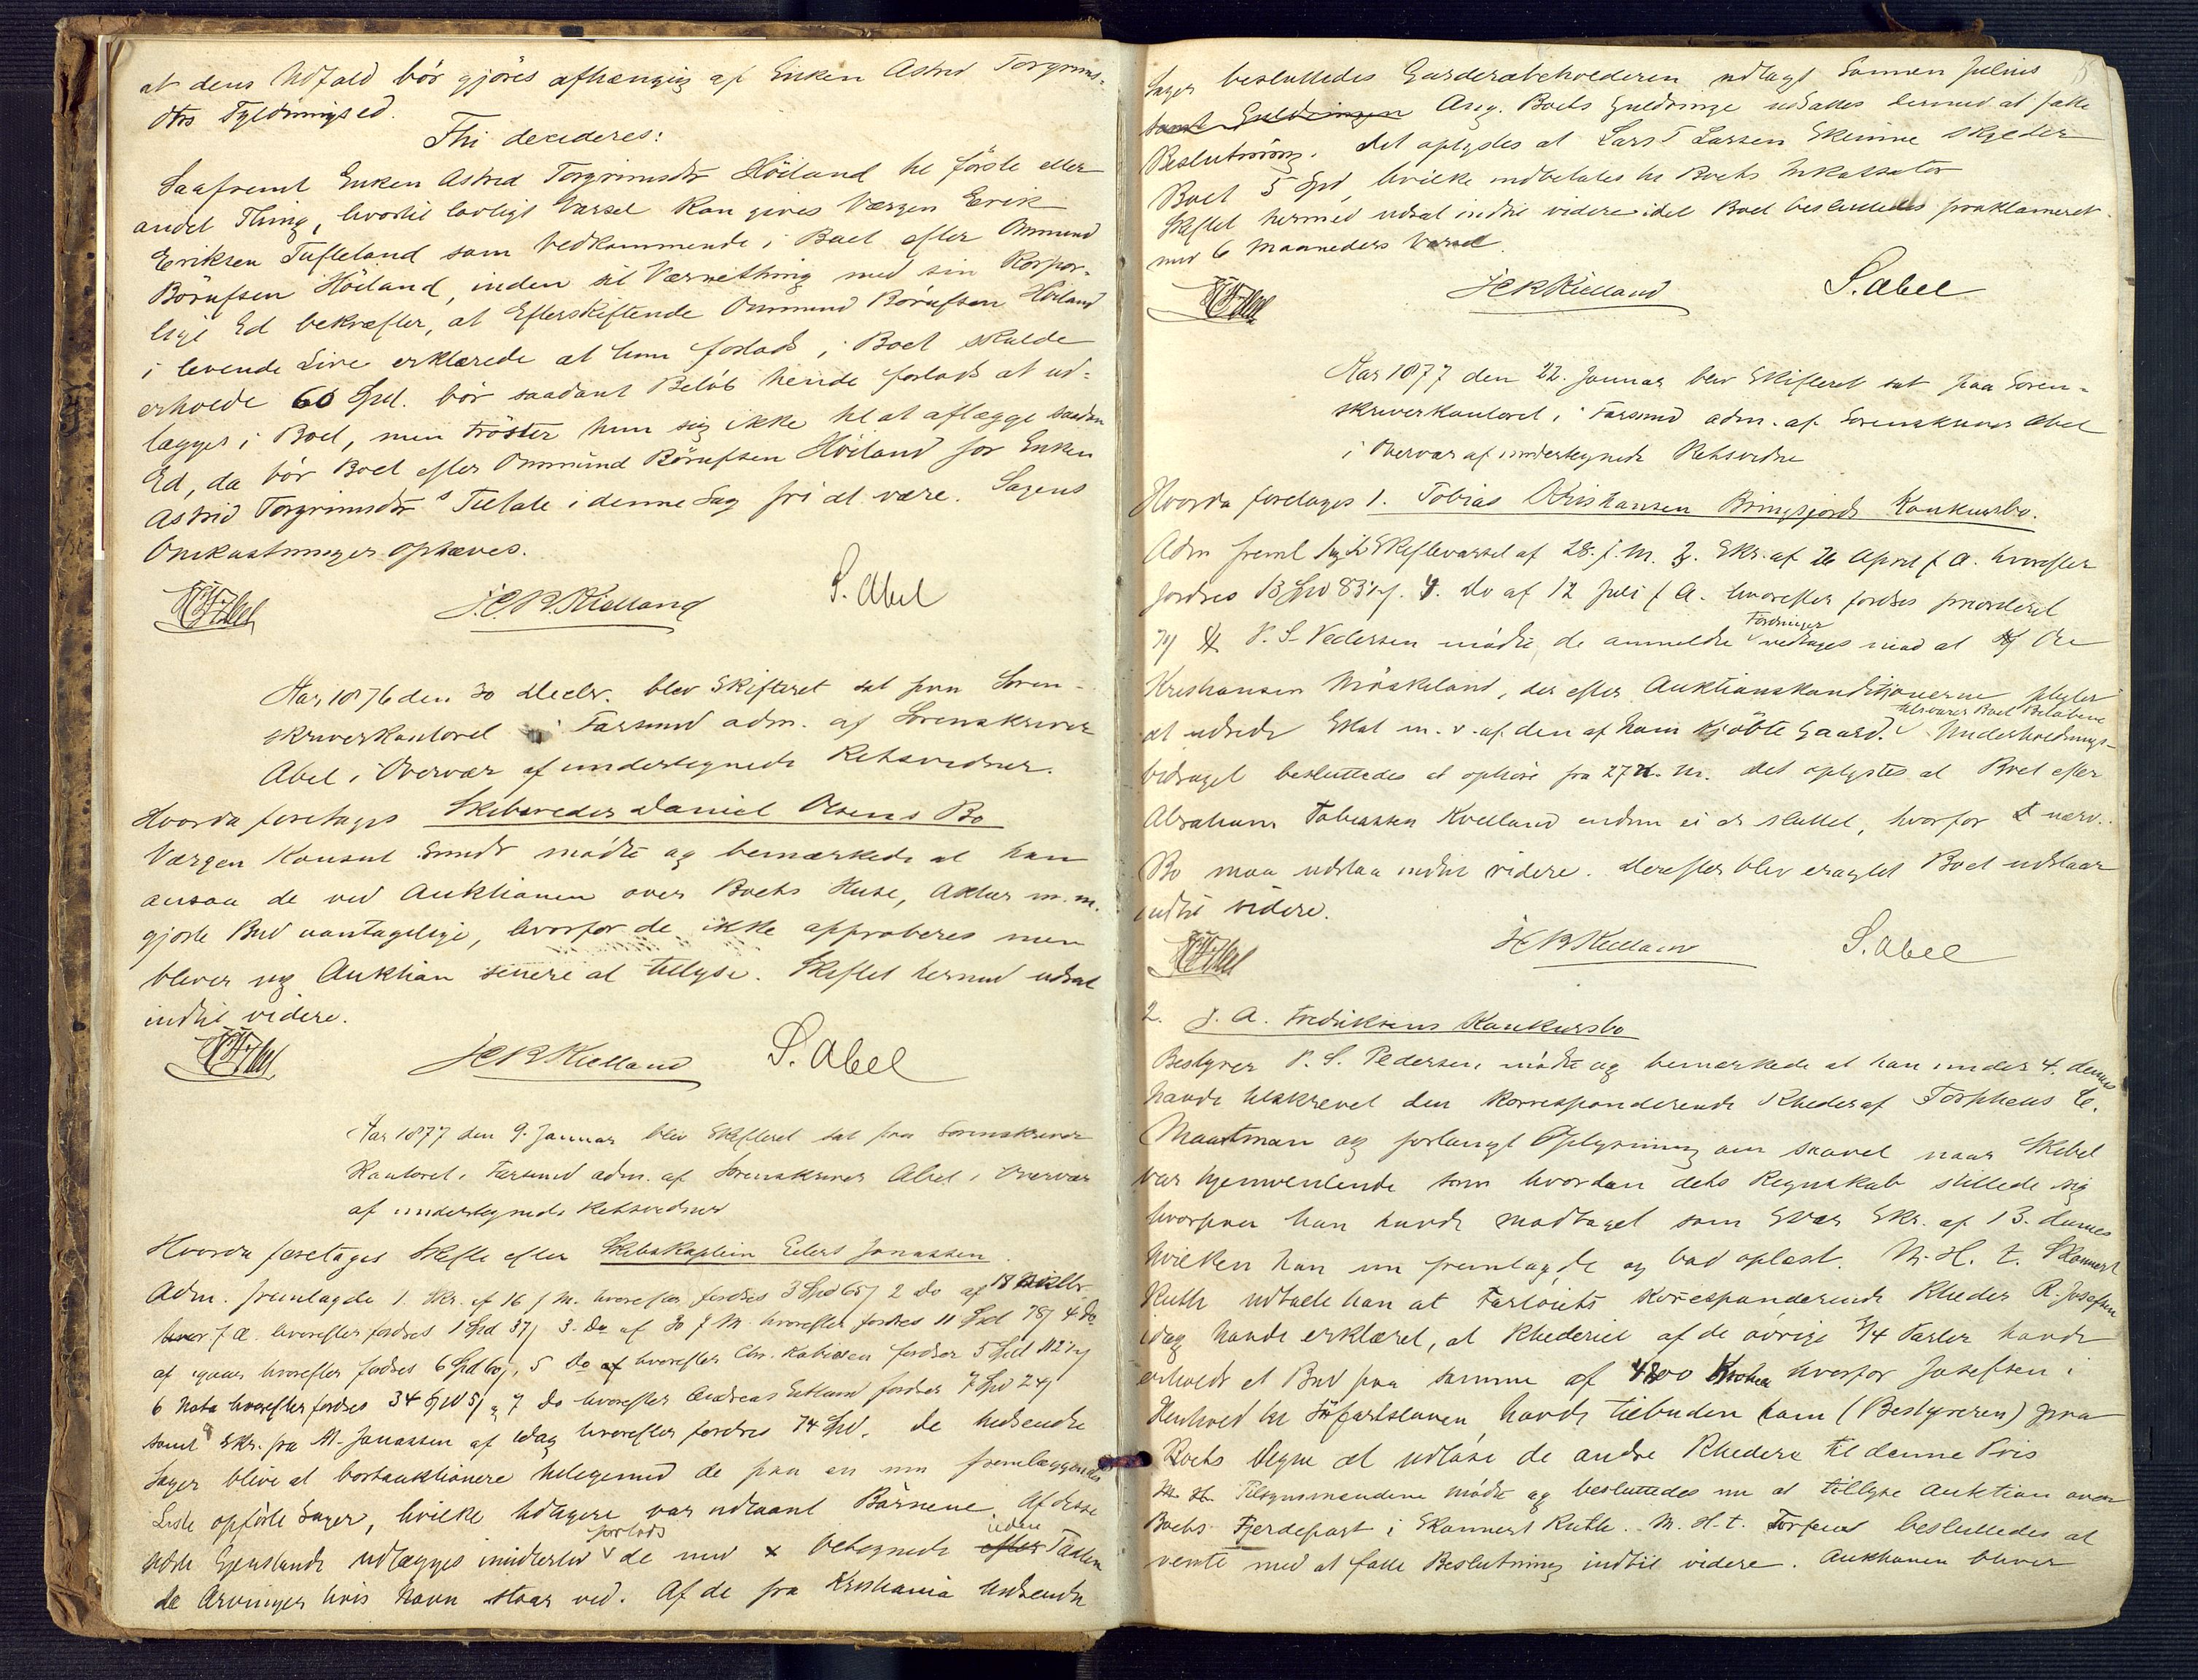 at dens Udfald bör gjöres afhængig af Enken Astrid Torgrims-
dtrs Fyldningsed.
Thi decideres:
Saafremt Enken Astrid Torgrimsdtr Höiland til förste eller
andet Thing, hvortil lovligt Varsel kan gives Værgen Erik
Eriksen Tufteland som Vedkommende i Boet efter Ommund
Börufsen Höiland, inden sit Værnething med sin Korpor-
lige Ed bekræfter, at Efterskiftende Ommund Börufsen Höiland
i levende Live erklærede at hun forlods i Boet skulde
erholde 60 Spd. bör saadant Belöb hende forlods at ud-
lægges i Boet, men tröster hun sig ikke til at aflægge saadan
Ed, da bör Boet efter Ommund Börufsen Höiland for Enken
Astrid Torgrimsdtr's Tiltale i denne Sag fri at være. Sagens
Omkostninger ophæves.
J.C.R. Kielland S. Abel
Aar 1876 den 30 Decbr. blev Skifteret sat paa Soren-
skriverkontoret i Farsund adm. af Sorenskriver
Abel i Overvær af undertegnede Retsvidner.
Hvorda foretages Skibsreder Daniel Olsens Bo
Værgen Konsul Sundt mödte og bemærkede at han
ansaa de ved Auktionen over Boets Huse, Aktier m.m.
gjorte Bud uantagelige, hvorfor de ikke approberes men
bliver ny Auktion senere at tillyse. Skiftet hermed udsat
indtil videre.
JCR Kielland S. Abel
Aar 1877 den 9. Januar blev Skifteret sat paa Sorenskriver
Kontoret i Farsund adm. af Sorenskriver Abel i Overvær
af undertegnede Retsvidner
Hvorda foretages Skifte efter Skibskaptein Eilert Jonassen.
Adm. fremlagde 1. Skr. af 16 f.M. hvorefter fordres 3 Spd 65 2 Do af 18
f.A. hvorefter fordres 1 Spd 37 3. Do af 30 f M. hvorefter fordres 11 Spd 78 4 Do
af hvorefter fordres 6 Spd 60, 5 Do af hvorefter Chr. fordrer 5 Spd 112
6 Nota hvorefter fordres 34 Spd 5, 7 Do hvorefter Andreas Eitland fordrer 7 Spd 24
samt 8 Skr. fra M. Jonassen af idag hvorefter fordres 74 Spd. De hidsendte
Sager blive at bortauktionere tilligemed de paa en nu fremlæggendes
Liste opförte Sager, hvilke tidligere var udlaant Börnene. Af disse
sidste Gjenstande udlægges imidlertid forlods de med x betegnede efter uden Taxten
de Arvinger hvis Navn staar ved. Af de fra Kristiania hidsendte
Sager besluttedes Garderobeholderen udlagt Sönnen Julius
samt Guldringen Ang. Boets Guldringe udsattes dermed at fatte
Beslutning. Det oplystes at Lars T Larsen Skeime skylder
Boet 5 Spd, hvilke indbetales til Boets Inkassator
Skiftet hermed udsat indtil videre idet Boet besluttedes proklameret
med 6 Maaneders Varsel.
JCR Kielland S. Abel
Aar 1877 den 22. Januar blev Skifteret sat paa Soren-
skriverkontoret i Farsund adm. af Sorenskriver Abel
i Overvær af undertegnede Retsvidne
Hvorda foretages 1. Tobias Kristiansen Bringsjords Konkursbo.
Adm freml. 1 og 2 Skiftevarsel af 28. f.M. 3. Skr. af 26 April f A. hvorefter
fordres 13 Spd 83. 4. Do af 12 Juli f A. hvorefter fordres prioriteret
P. S. Pedersen mödte, de anmeldte Fordringer vedtages mod at Ole
Kristiansen Möskeland, der efter Auktionskonditjonerne pligter
at udrede Skat m. v. af den af ham kjöbte Gaard. tilsvarer Boet Belöbene Underholdnings-
bidraget besluttedes at ophöre fra 27 d. M. Det oplystes at Boet efter
Abraham Tobiassen Kvelland endnu ei er sluttet, hvorfor nærv.
Bo maa udstaa indtil videre. Derefter blev eragtet Boet udstaar
indtil videre.
JCR Kielland S. Abel
2. J. A. Fredriksens Konkursbo
Bestyrer P. S. Pedersen, mödte og bemærkede at han under 4. dennes
havde tilskrevet den korresponderende Rheder af Torpheus C.
Maartman og forlangt Oplysning om saavel naar Skibet
var hjemventende som hvordan dets Regnskab stillede sig
hvorpaa han havde modtaget som Svar Skr. af 13. dennes
hvilken han nu fremlagde og bad oplæst. M. H. t. Skonnert
Ruth udtalte han at Fartöiets korresponderende Rheder R. Josefsen
idag havde erklæret, at Rhederiet af de övrige 3/4 Parter havde
erholdt et Bud paa samme af 4800 Kroner hvorfor Josefsen i
Henhold til Söfartsloven, havde tilbuden ham (Bestyreren) paa
Boets Vegne at udlöse de andre Rhedere til denne Pris
Tilsynsmændene mödte og besluttedes nu at tillyse Auktion over
Boets Fjerdepart i Skonnert Ruth. M. H. t. Torpeus besluttedes at
vente med at fatte Beslutning indtil videre. Auktionen bliver